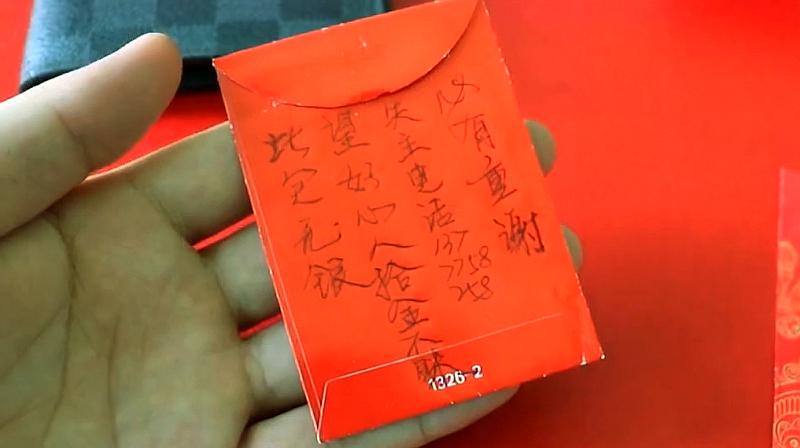 此定无银
望好心人拾金不昧
失主电话
137
7758
258
必有重谢
1326-2